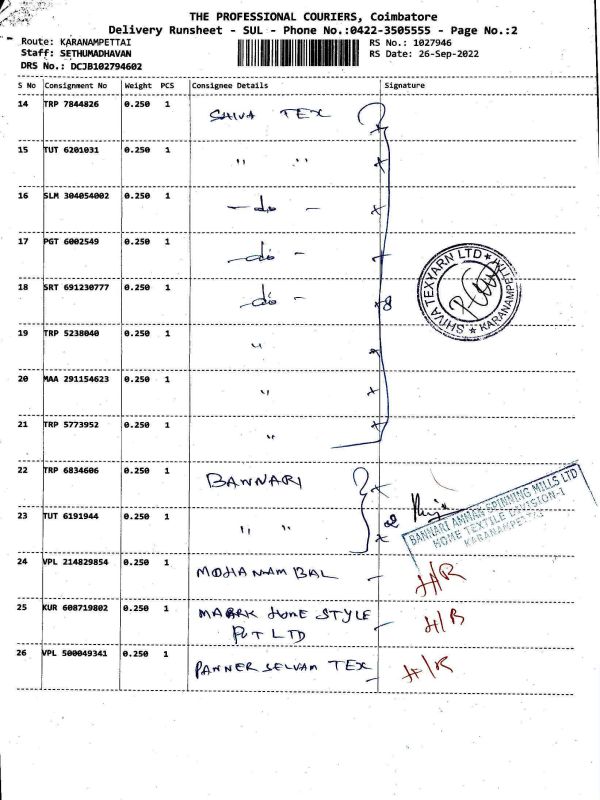 THE PROFESSIONAL COURIERS, Coimbatore
Delivery Runsheet - SUL - Phone No.:0422-3505555 - Page No.:2
Route: KARANAMPETTAI RS No.: 1027946
Staff: SETHUMADHAVAN RS Date: 26-Sep-2022
DRS No.: DCJB102794602
S No Consignment No Weight PCS Consignee Details Signature
14 TRP 7844826 0.250 1 SHIVA TEX
15 TUT 6201031 0.250 1 " "
16 SLM 304054002 0.250 1 - do -
17 PGT 6002549 0.250 1 - do -
18 SRT 691230777 0.250 1 - do - 8
SHIVA TEXYARN LTD ★ KARANAMPETTAI ★
19 TRP 5238040 0.250 1 "
20 MAA 291154623 0.250 1 "
21 TRP 5773952 0.250 1 "
22 TRP 6834606 0.250 1 BANNARI
23 TUT 6191944 0.250 1 " " 2
BANNARI AMMAN SPINNING MILLS LTD
HOME TEXTILE DIVISION-1
KARANAMPETTAI
24 VPL 214829854 0.250 1 MOHANAMBAL - H/R
25 KUR 608719802 0.250 1 MAARK HOME STYLE - H/R
PVT LTD
26 VPL 500049341 0.250 1 PANNER SELVAM TEX - H/R